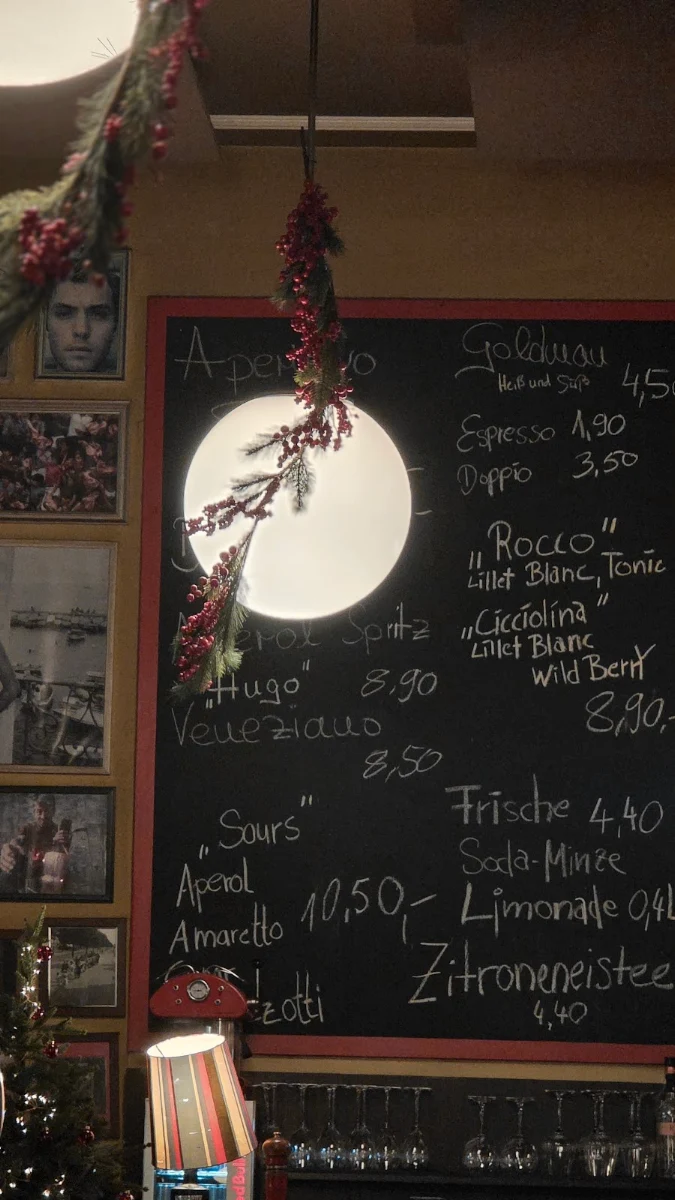 Aperol Spritz
„Hugo" 8,90
Veneziano
8,50
„Sours"
Aperol
Amaretto 10,50,-
Goldmau
Heiß und Süß 4,50
Espresso 1,90
Doppio 3,50
„Rocco"
Lillet Blanc, Tonic
„Cicciolina"
Lillet Blanc
Wild Berry
8,90,-
Frische 4,40
Soda-Minze
Limonade 0,4L
Zitroneneistee
4,40